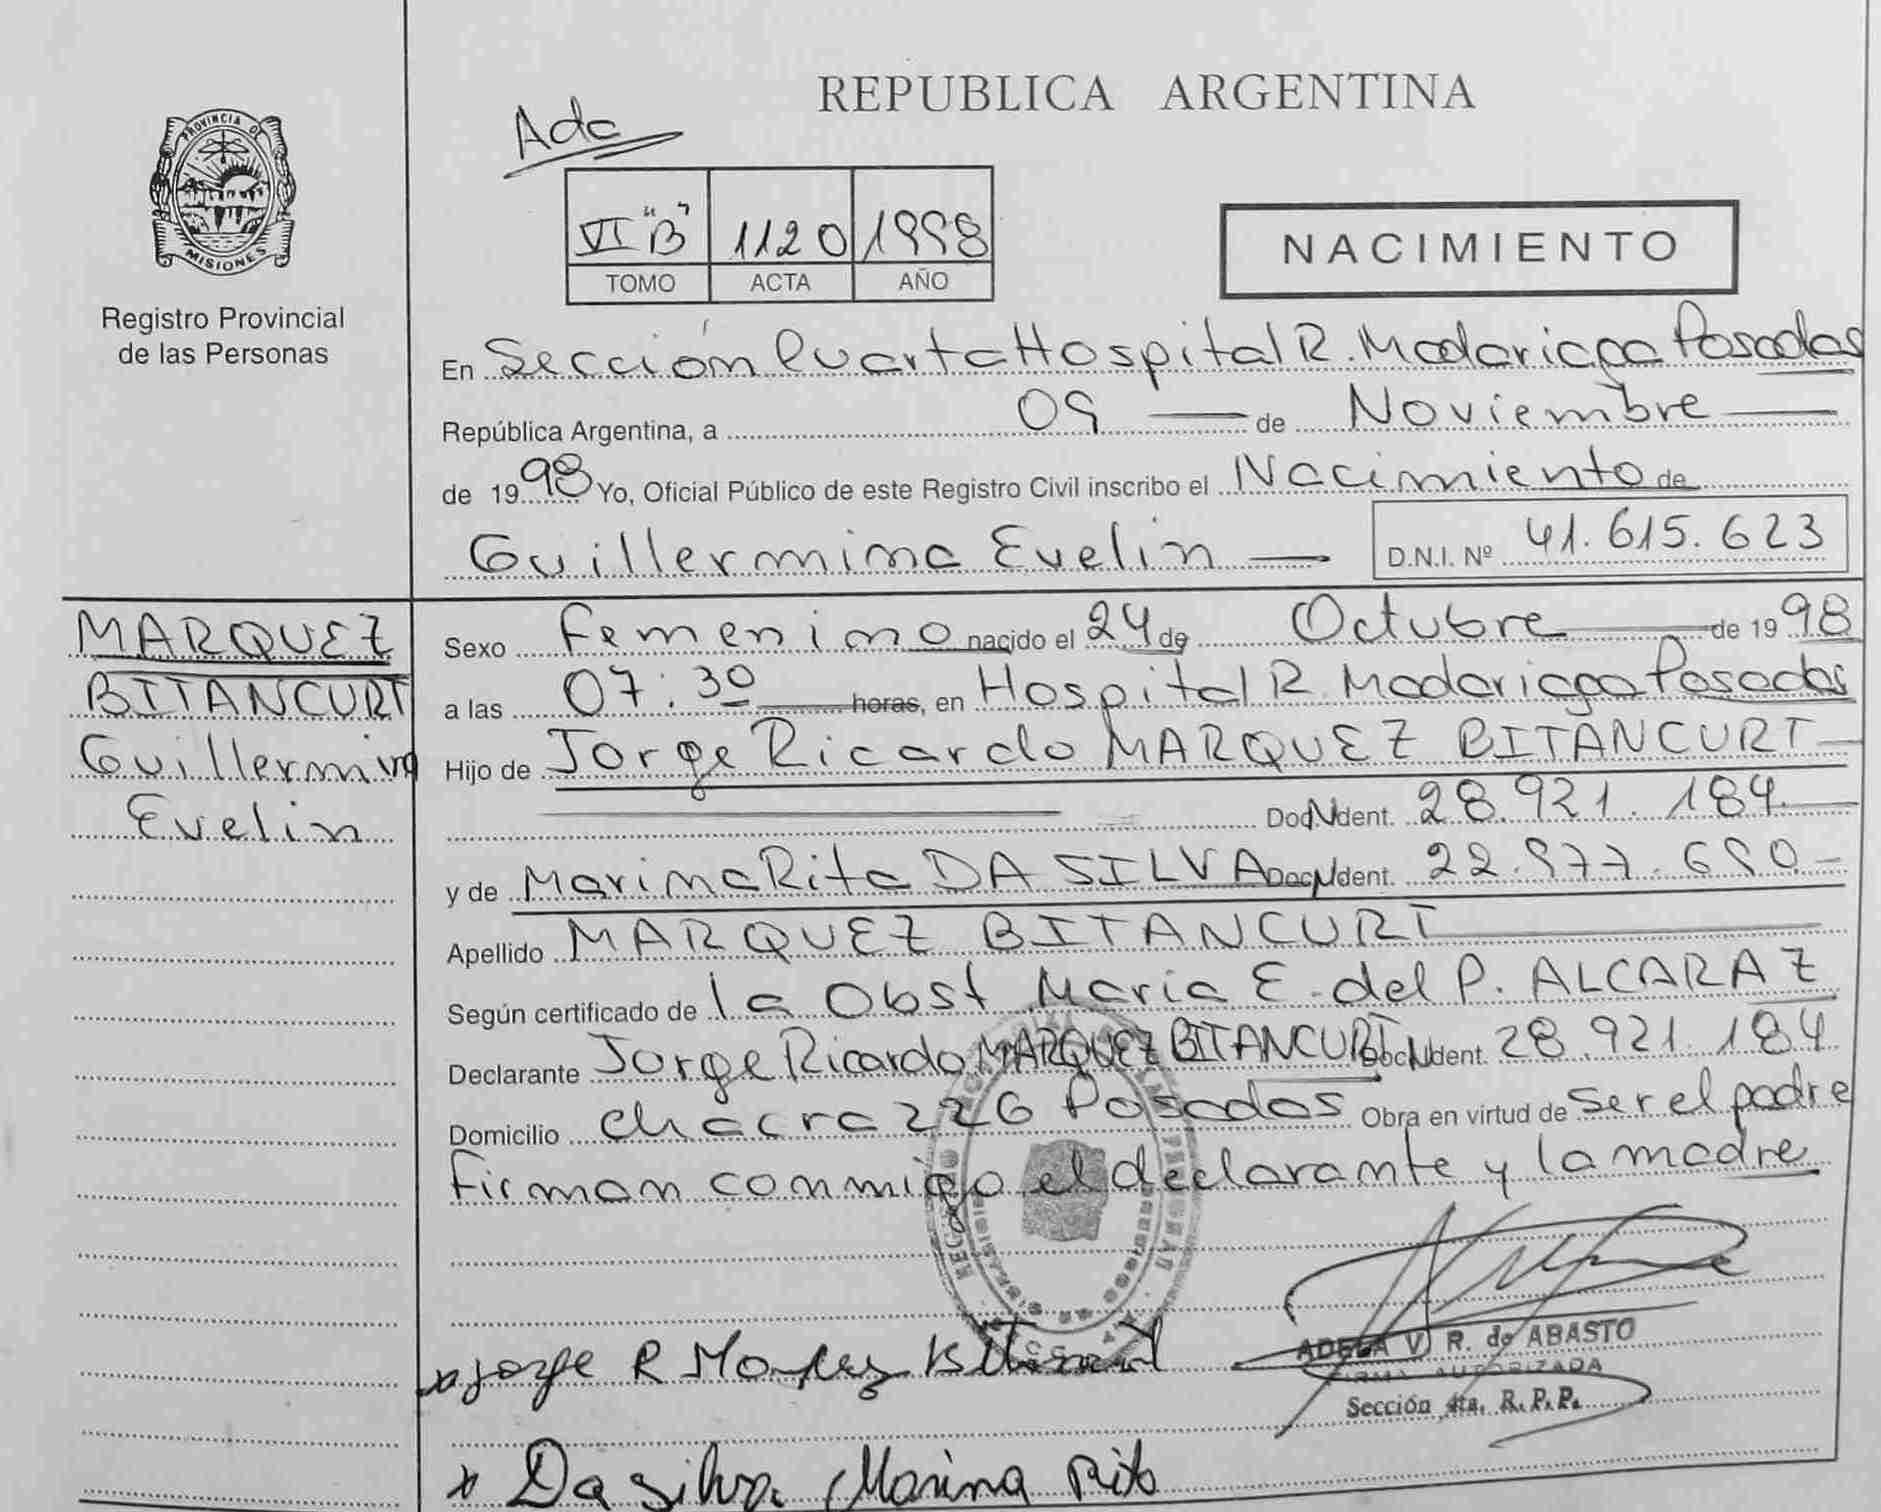 REPUBLICA ARGENTINA
Ada
PROVINCIA DE
MISIONES
Registro Provincial
de las Personas
VI "B" 1120 1998
TOMO ACTA AÑO
NACIMIENTO
En Sección Cuarta Hospital R. Madariaga Posadas
República Argentina, a 09 de Noviembre
de 1998 Yo, Oficial Público de este Registro Civil inscribo el Nacimiento de
Guillermina Evelin D.N.I. Nº 41.615.623
MARQUEZ
BITANCURT
Guillermina
Evelin
Sexo Femenino nacido el 24 de Octubre de 1998
a las 07:30 horas, en Hospital R. Madariaga Posadas
Hijo de Jorge Ricardo MARQUEZ BITANCURT
Doc N Ident. 28.921.184
y de Marina Rita DA SILVA Doc N Ident. 22.977.690.-
Apellido MARQUEZ BITANCURT
Según certificado de la Obst Maria E. del P. ALCARAZ
Declarante Jorge Ricardo MARQUEZ BITANCURT Doc N Ident. 28.921.184
Domicilio chacra 226 Posadas Obra en virtud de ser el padre
Firman conmigo el declarante y la madre
Jorge R Marquez Bitancurt
ADELA V. R. de ABASTO
FIRMA AUTORIZADA
Sección 4ta. R.P.P.
Da Silva Marina Rita